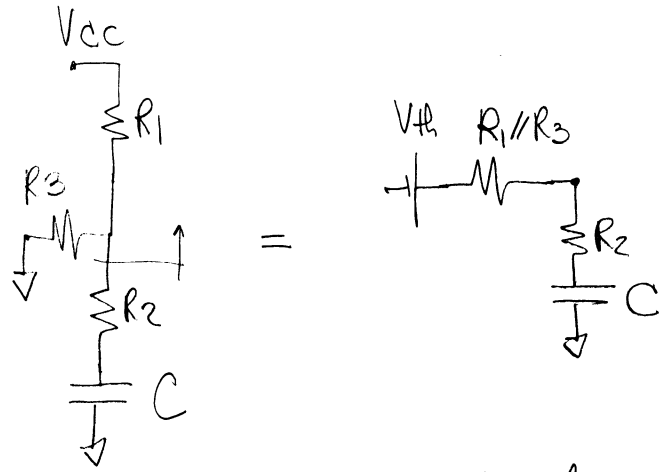 Vcc
R1
R3
R2
C
=
Vth R1//R3
R2
C